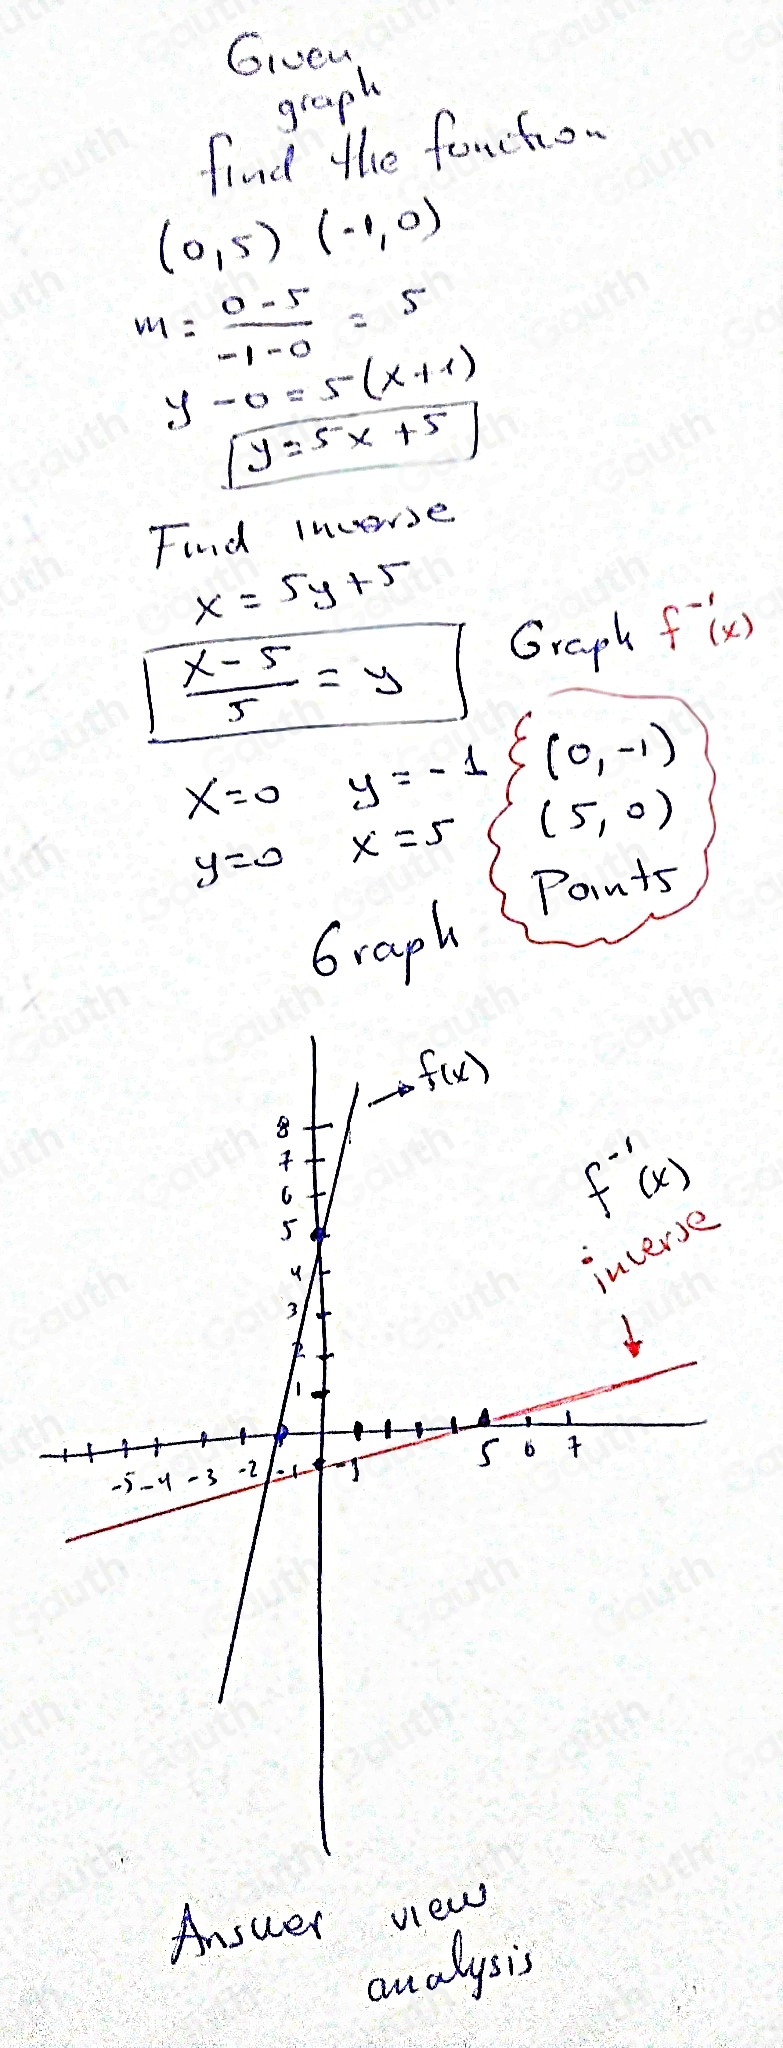 Given
graph
find the function
(0,5) (-1,0)
m = \frac{0-5}{-1-0} = 5
y - 0 = 5(x+1)
y = 5x + 5
Find inverse
x = 5y + 5
\frac{x-5}{5} = y
Graph f^{-1}(x)
x=0 y=-1
y=0 x=5
(0,-1)
(5,0)
Points
Graph
f(x)
f^{-1}(x)
inverse
8
7
6
5
4
3
2
1
-5 -4 -3 -2 -1 -1 5 6 7
Answer view
analysis
Gauth